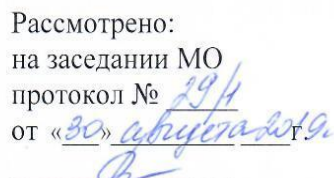 Рассмотрено:
на заседании МО
протокол № 29/1
от «30» августа 2019г.